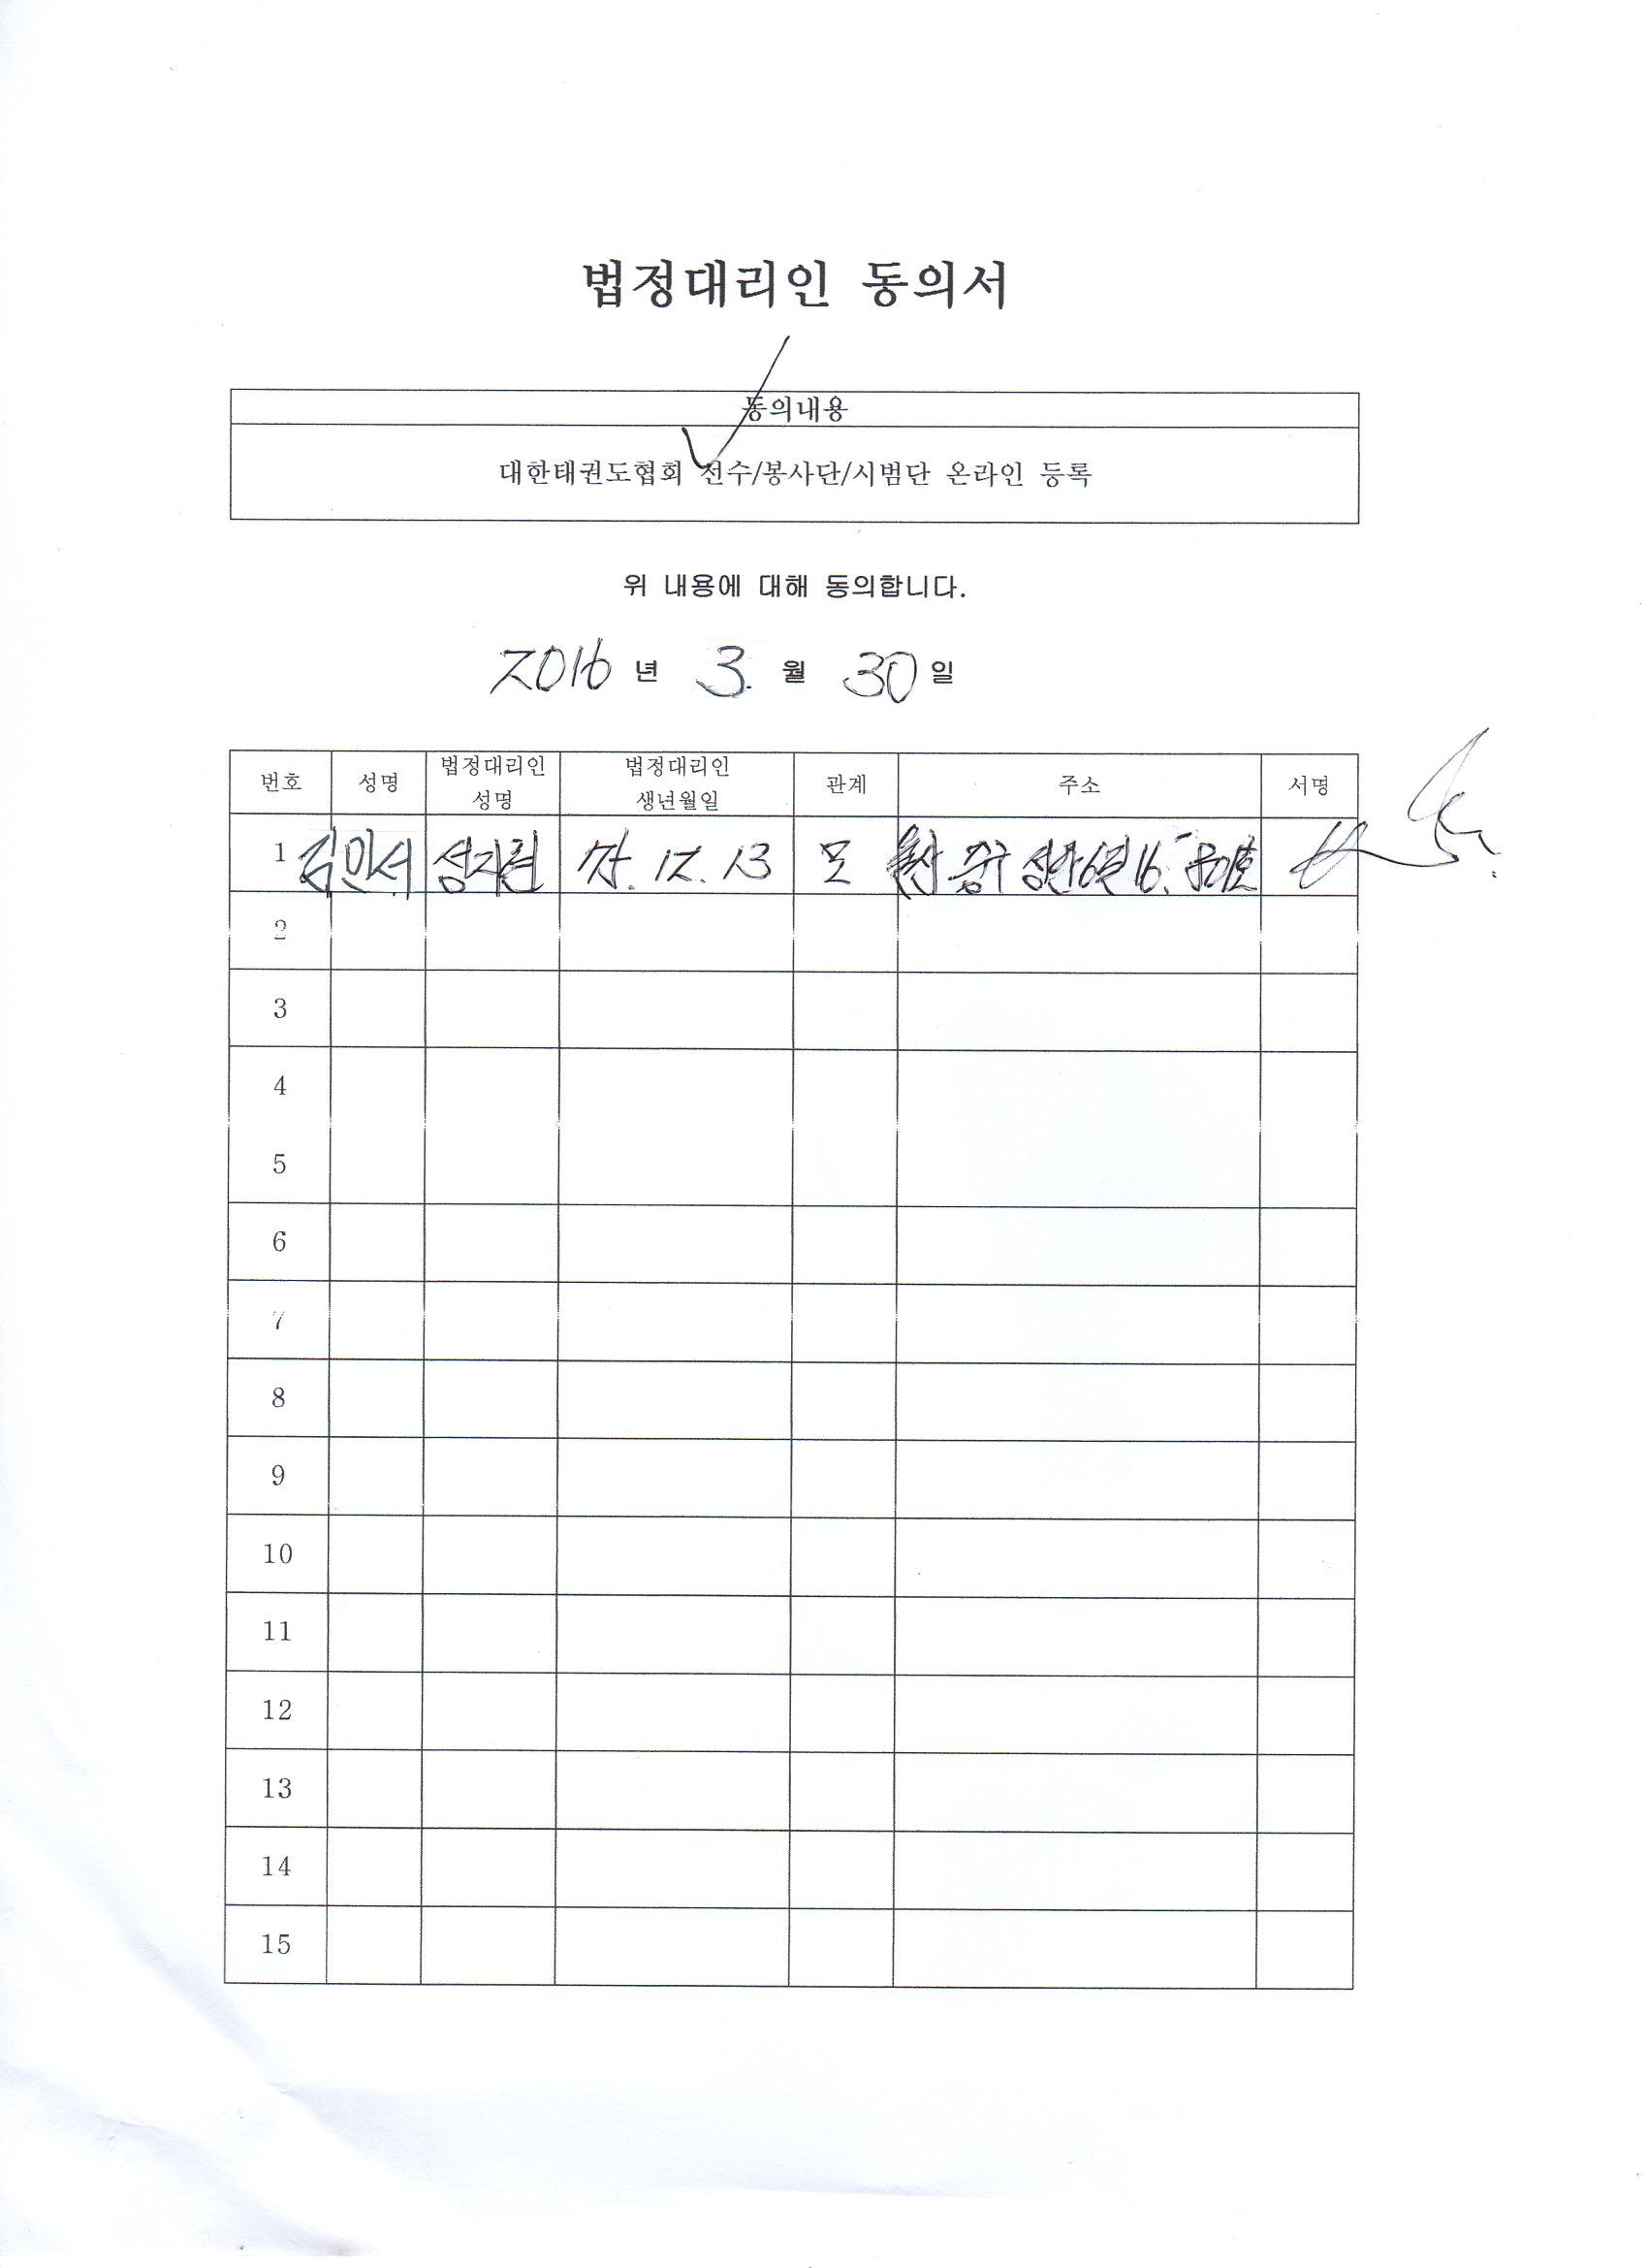 법정대리인 동의서
동의내용
대한태권도협회 선수/봉사단/시범단 온라인 등록
위 내용에 대해 동의합니다.
2016 년 3. 월 30 일
번호 성명 법정대리인 성명 법정대리인 생년월일 관계 주소 서명
1 김민서 성지원 12. 13 모 중구 16.
2
3
4
5
6
7
8
9
10
11
12
13
14
15